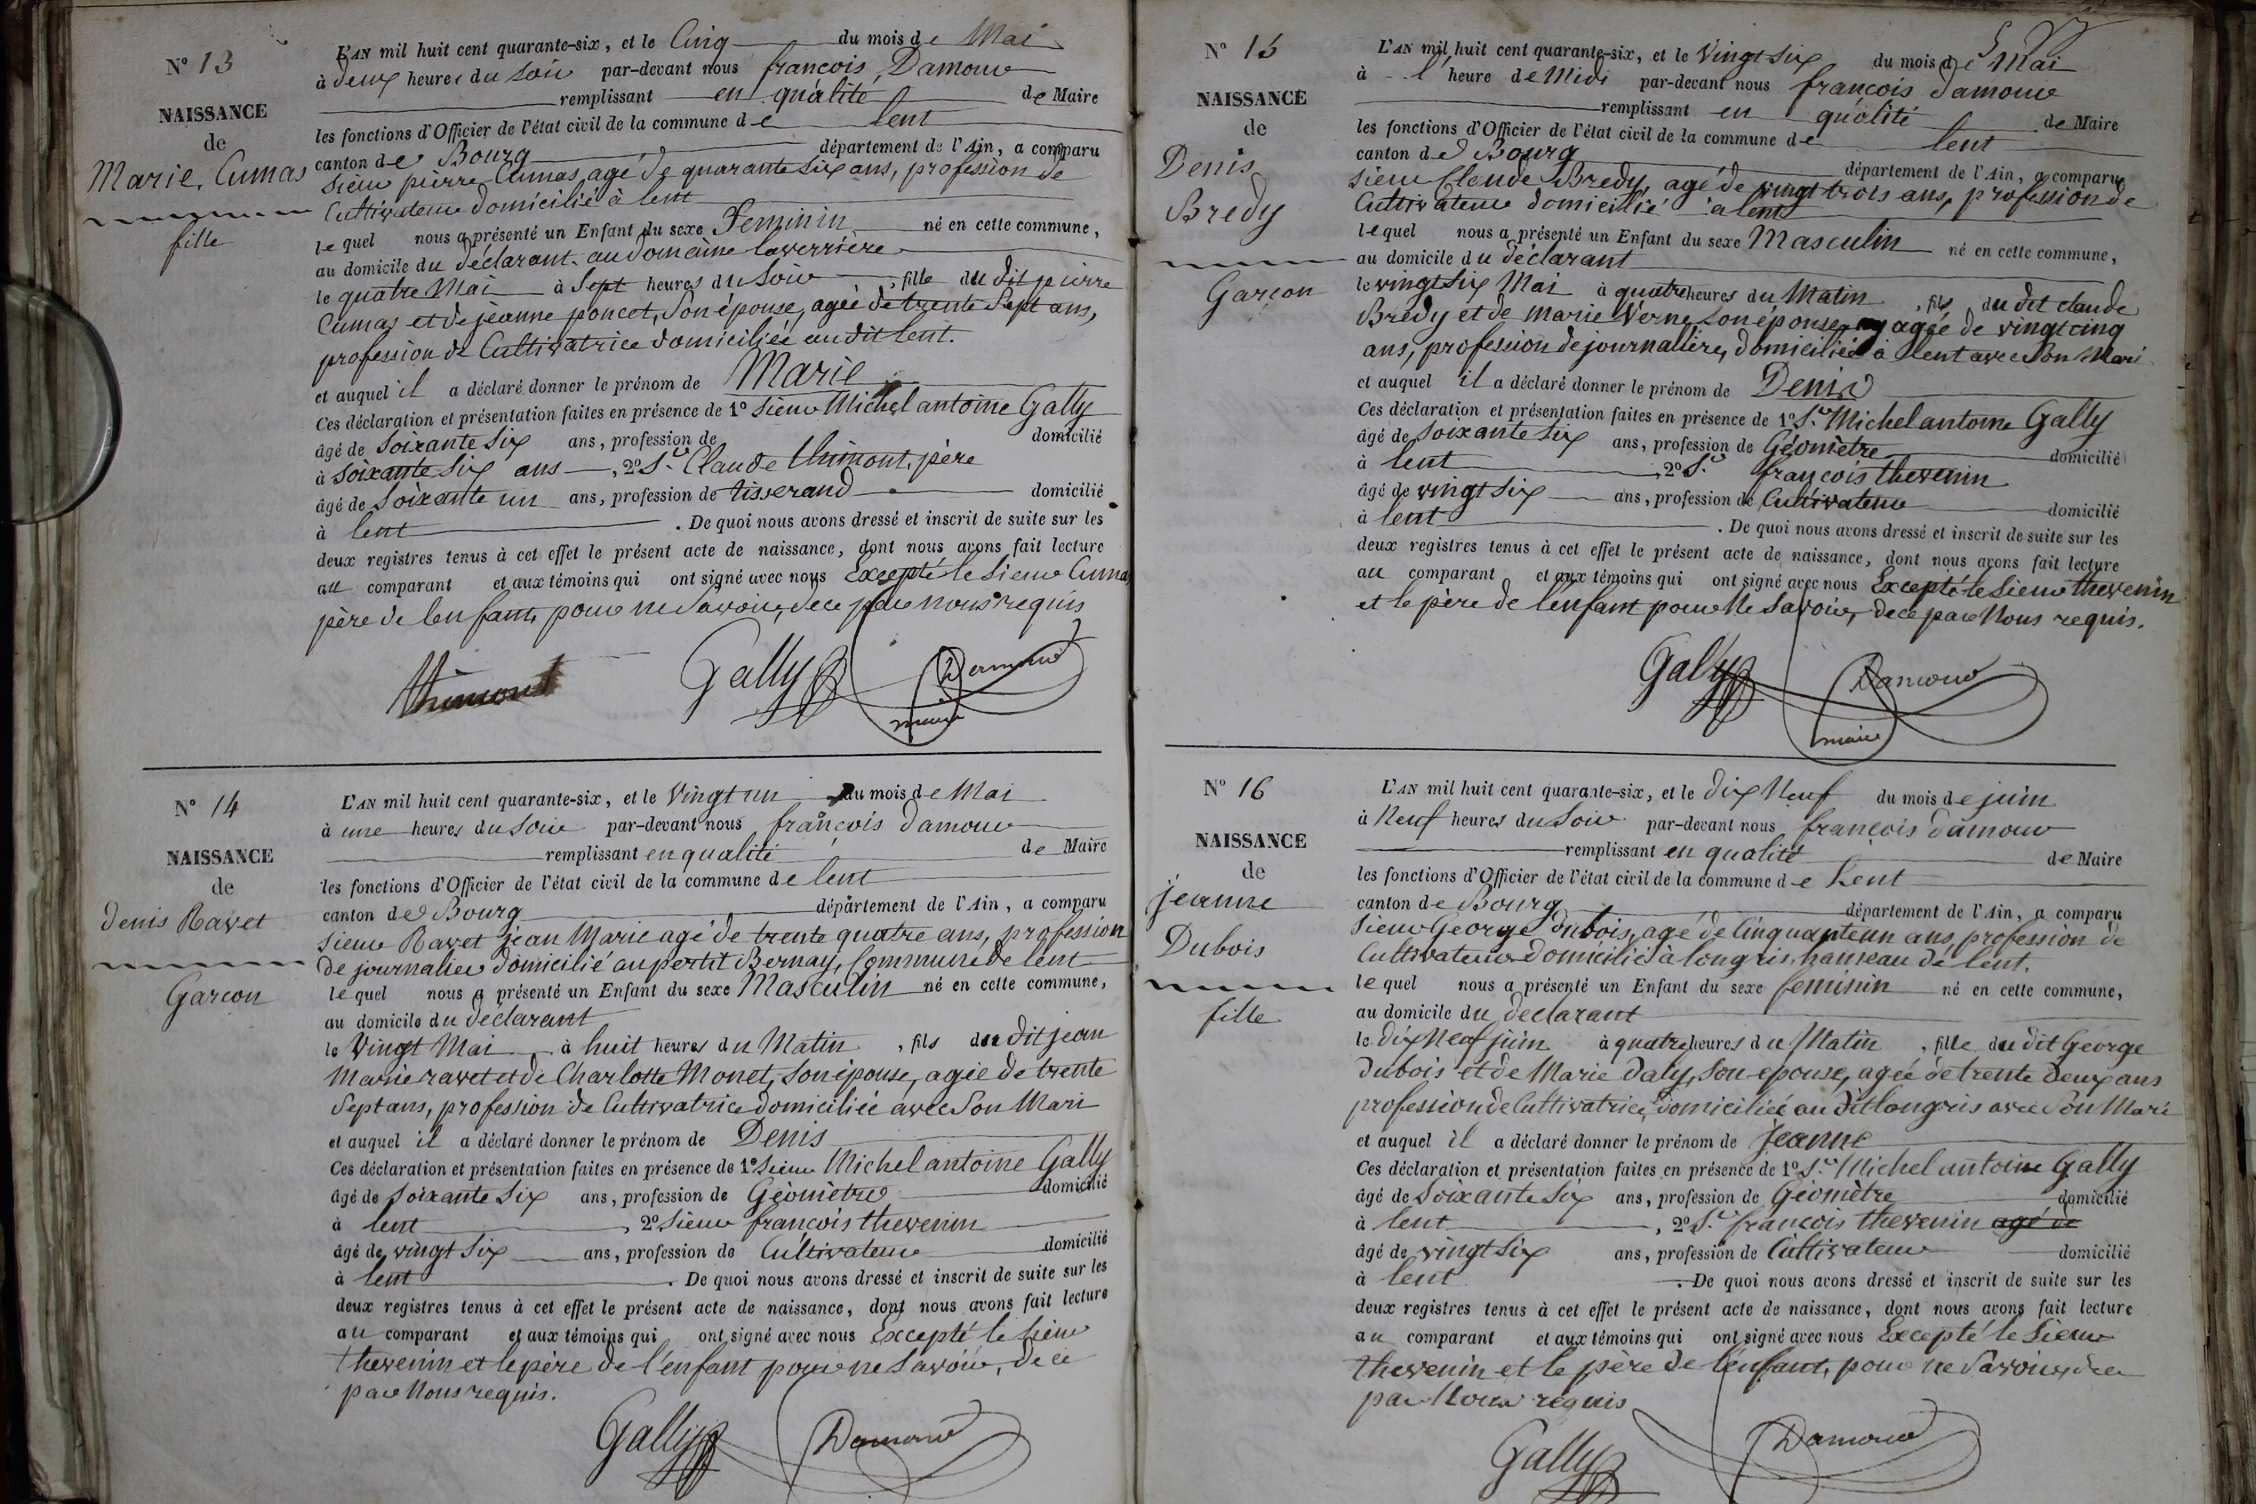 N° 13
NAISSANCE
de
Marie Cumas
fille
L'AN mil huit cent quarante-six, et le Cinq du mois de Mai
à deux heures du soir par-devant nous françois Damour
remplissant en qualité de Maire
les fonctions d'Officier de l'état civil de la commune de lent
canton de Bourg département de l'Ain, a comparu
sieur pierre Cumas, agé de quarante six ans, profession de
Cultivateur domicilié à lent
lequel nous a présenté un Enfant du sexe Feminin né en cette commune,
au domicile du déclarant au domaine laverrière
le quatre Mai à Sept heures du Soir, fille du dit pierre
Cumas et de jeanne poncet, Son épouse, agée de trente Sept ans,
profession de Cultivatrice domiciliée au dit lent.
et auquel il a déclaré donner le prénom de Marie
Ces déclaration et présentation faites en présence de 1° Sieur Michel antoine Gally
âgé de Soixante Six ans, profession de domicilié
à soixante six ans, 2° Sr Claude thimont, père
âgé de Soixante un ans, profession de tisserand domicilié
à lent. De quoi nous avons dressé et inscrit de suite sur les
deux registres tenus à cet effet le présent acte de naissance, dont nous avons fait lecture
au comparant et aux témoins qui ont signé avec nous Excepté le Sieur Cumas
père de l'enfant, pour ne Savoir, de ce par nous requis
thimont Gally Damour
maire
N° 14
NAISSANCE
de
denis Ravet
Garcon
L'AN mil huit cent quarante-six, et le Vingt un du mois de Mai
à une heures du Soir par-devant nous françois damour
remplissant en qualité de Maire
les fonctions d'Officier de l'état civil de la commune de lent
canton de Bourg département de l'Ain, a comparu
sieur Ravet jean Marie agé de trente quatre ans, profession
de journalier domicilié au pertit Bernay, Commune de lent
lequel nous a présenté un Enfant du sexe Masculin né en cette commune,
au domicile du déclarant
le Vingt Mai à huit heures du Matin, fils du dit jean
Marie ravet et de Charlotte Monet, Son épouse, agée de trente
Sept ans, profession de Cultivatrice domiciliée avec Son Mari
et auquel il a déclaré donner le prénom de Denis
Ces déclaration et présentation faites en présence de 1° Sieur Michel antoine Gally
âgé de Soixante Six ans, profession de Géomètre domicilié
à lent, 2° Sieur françois thevenin
âgé de vingt Six ans, profession de Cultivateur domicilié
à lent. De quoi nous avons dressé et inscrit de suite sur les
deux registres tenus à cet effet le présent acte de naissance, dont nous avons fait lecture
au comparant et aux témoins qui ont signé avec nous Excepté le Sieur
thevenin et le père de l'enfant pour ne Savoir, de ce
par Nous requis.
Gally Damour
N° 15
NAISSANCE
de
Denis
Bredy
Garçon
L'AN mil huit cent quarante-six, et le Vingt Six du mois de Mai
à l' heure de Midi par-devant nous françois damour
remplissant en qualité de Maire
les fonctions d'Officier de l'état civil de la commune de lent
canton de Bourg département de l'Ain, a comparu
sieur Claude Bredy, agé de vingt trois ans, profession de
Cultivateur domicilié à lent
lequel nous a présenté un Enfant du sexe Masculin né en cette commune,
au domicile du déclarant
le vingt Six Mai à quatre heures du Matin, fils du dit claude
Bredy et de Marie Verne, son épouse, agée de vingt cinq
ans, profession de journalière, domiciliée à lent avec Son Mari
et auquel il a déclaré donner le prénom de Denis
Ces déclaration et présentation faites en présence de 1° Sr Michel antoine Gally
âgé de Soixante Six ans, profession de Géomètre domicilié
à lent, 2° Sr françois thevenin
âgé de vingt Six ans, profession de Cultivateur domicilié
à lent. De quoi nous avons dressé et inscrit de suite sur les
deux registres tenus à cet effet le présent acte de naissance, dont nous avons fait lecture
au comparant et aux témoins qui ont signé avec nous Excepté le Sieur thevenin
et le père de l'enfant pour Ne Savoir, de ce par Nous requis.
Gally Damour
maire
N° 16
NAISSANCE
de
jeanne
Dubois
fille
L'AN mil huit cent quarante-six, et le dix Neuf du mois de juin
à Neuf heures du Soir par-devant nous françois damour
remplissant en qualité de Maire
les fonctions d'Officier de l'état civil de la commune de Lent
canton de Bourg département de l'Ain, a comparu
Sieur George dubois, agé de Cinquante un ans, profession de
Cultivateur domicilié à longris, hameau de lent.
lequel nous a présenté un Enfant du sexe feminin né en cette commune,
au domicile du déclarant
le dix Neuf juin à quatre heures du Matin, fille du dit George
dubois et de Marie daly, Son epouse, agée de trente deux ans
profession de Cultivatrice, domiciliée au dit longris avec Son Mari
et auquel il a déclaré donner le prénom de jeanne
Ces déclaration et présentation faites en présence de 1° Sr Michel antoine Gally
âgé de Soixante Six ans, profession de Géomètre domicilié
à lent, 2° Sr françois thevenin agé de
âgé de vingt Six ans, profession de Cultivateur domicilié
à lent. De quoi nous avons dressé et inscrit de suite sur les
deux registres tenus à cet effet le présent acte de naissance, dont nous avons fait lecture
au comparant et aux témoins qui ont signé avec nous Excepté le Sieur
thevenin et le père de l'enfant, pour ne Savoir, de ce
par Nous requis
Gally Damour